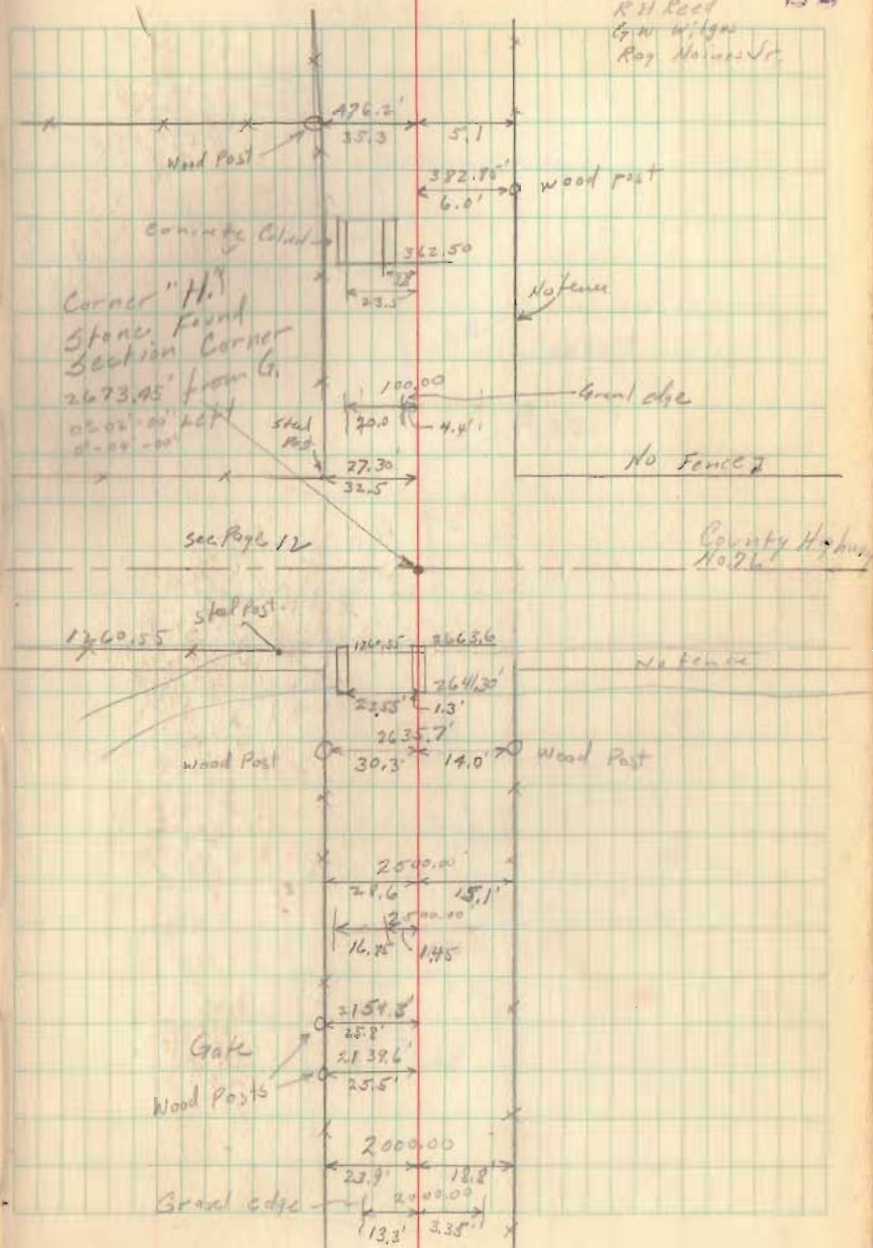 R H Reed
G. W. Wilgus
Roy Haines Jr.
476.2'
35.3 5.1
Wood Post
382.85'
wood post
6.0'
Concrete
362.50
23.5
Corner "H."
Stone Found
Section Corner
2673.45' from G.
Left
0°-04'-00"
No fence
100.00
Gravel edge
20.0 4.4'
Steel Post
27.30'
32.5
No Fence
see Page 12
County Highway
No. 26
steel Post
1260.55
1260.55 2663.6
No fence
2641.30'
22.55' 1.3'
2635.7'
Wood Post 30.3' 14.0' Wood Post
2500.00'
28.6 15.1'
2500.00'
16.75 1.45
2154.3'
25.8'
Gate
2139.6'
25.5'
Wood Posts
2000.00
23.9' 18.8'
Gravel edge 2000.00
13.3' 3.35'